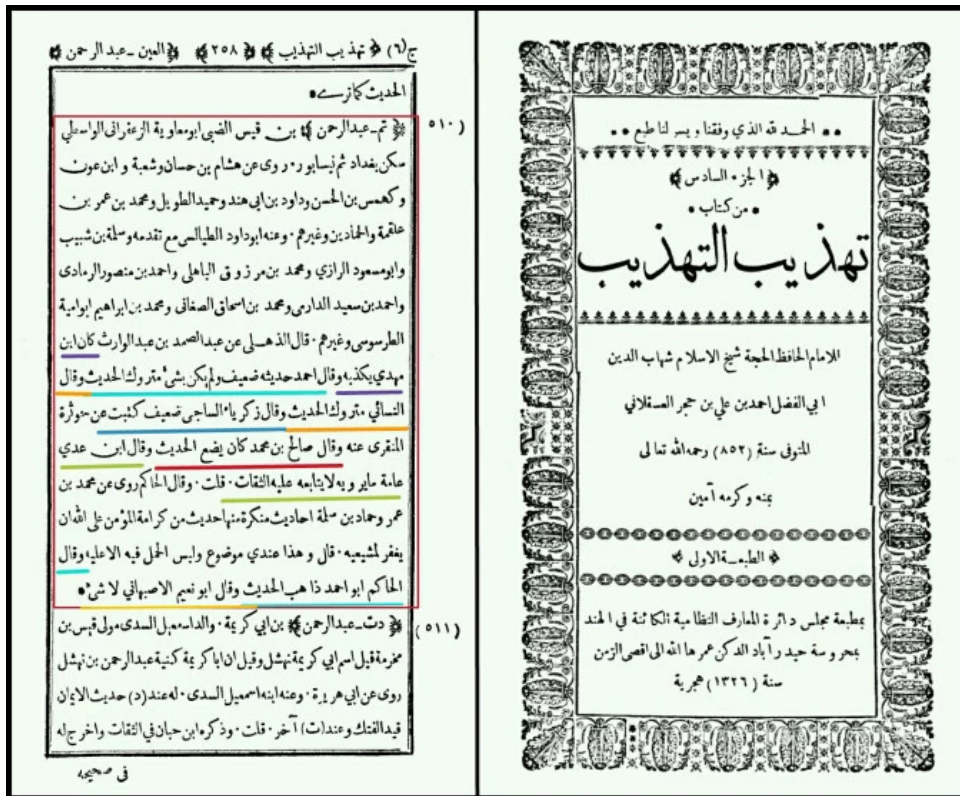 ج(٦) ﴿ تهذيب التهذيب ﴾ ﴿ ٢٥٨ ﴾ ﴿ العين ـ عبد الرحمن ﴾
الحديث كما ترے •
(٥١٠ ﴿ تم ـ عبدالرحمن ﴾ بن قيس الضبي ابومعاوية الزعفراني الواسطي
سكن بغداد ثم نيسابور • روى عن هشام بن حسان وشعبة وابن عون
وكهمس بن الحسن وداود بن ابي هند وحميد الطويل ومحمد بن عمر بن
علقمة والحمادين وغيرهم • وعنه ابوداود الطيالسي مع تقدمه وسلمة بن شبيب
وابومسعود الرازي ومحمد بن مرزوق الباهلي واحمد بن منصور الرمادى
واحمد بن سعيد الدارمى ومحمد بن اسحاق الصغاني ومحمد بن ابراهيم ابوامية
الطرسوسى وغيرهم • قال الذهلي عن عبدالصمد بن عبدالوارث كان ابن
مهدي يكذبه وقال احمد حديثه ضعيف ولم يكن بشئ متروك الحديث وقال
النسائي متروك الحديث وقال زكرياء الساجى ضعيف كتبت عن حوثرة
المنقرى عنه وقال صالح بن محمد كان يضع الحديث وقال ابن عدي
عامة مايرويه لايتابعه عليه الثقات • قلت • وقال الحاكم روى عن محمد بن
عمر وحماد بن سلمة احاديث منكرة منها حديث من كرامة المؤمن على الله ان
يغفر لمشيعيه • قال وهذا عندي موضوع وليس الحمل فيه الاعليه وقال
الحاكم ابو احمد ذاهب الحديث وقال ابو نعيم الاصبهاني لا شئ •
(٥١١) ﴿ دت ـ عبدالرحمن ﴾ بن ابي كريمة • والداسمعيل السدى مولى قيس بن
مخرمة قيل اسم ابي كريمة نهشل وقيل ان ابا كريمة كنية عبدالرحمن بن نهشل
روى عن ابي هريرة • وعنه ابنه اسمعيل السدى • له عند (د) حديث الايمان
قيد الفتك وعند (ت) آخر • قلت • وذكره ابن حبان في الثقات واخرج له
في صحيحه
•• الحمد لله الذي وفقنا ويسر لنا طبع ••
﴿ الجزء السادس ﴾
• من كتاب •
تهذيب التهذيب
للامام الحافظ الحجة شيخ الاسلام شهاب الدين
ابي الفضل احمد بن علي بن حجر العسقلاني
المتوفى سنة (٨٥٢) رحمه الله تعالى
بمنه وكرمه آمين
﴿ الطبعة الاولى ﴾
بمطبعة مجلس دائرة المعارف النظامية الكائنة في الهند
بمحروسة حيدرآباد الدكن عمرها الله الى اقصى الزمن
سنة (١٣٢٦) هجرية